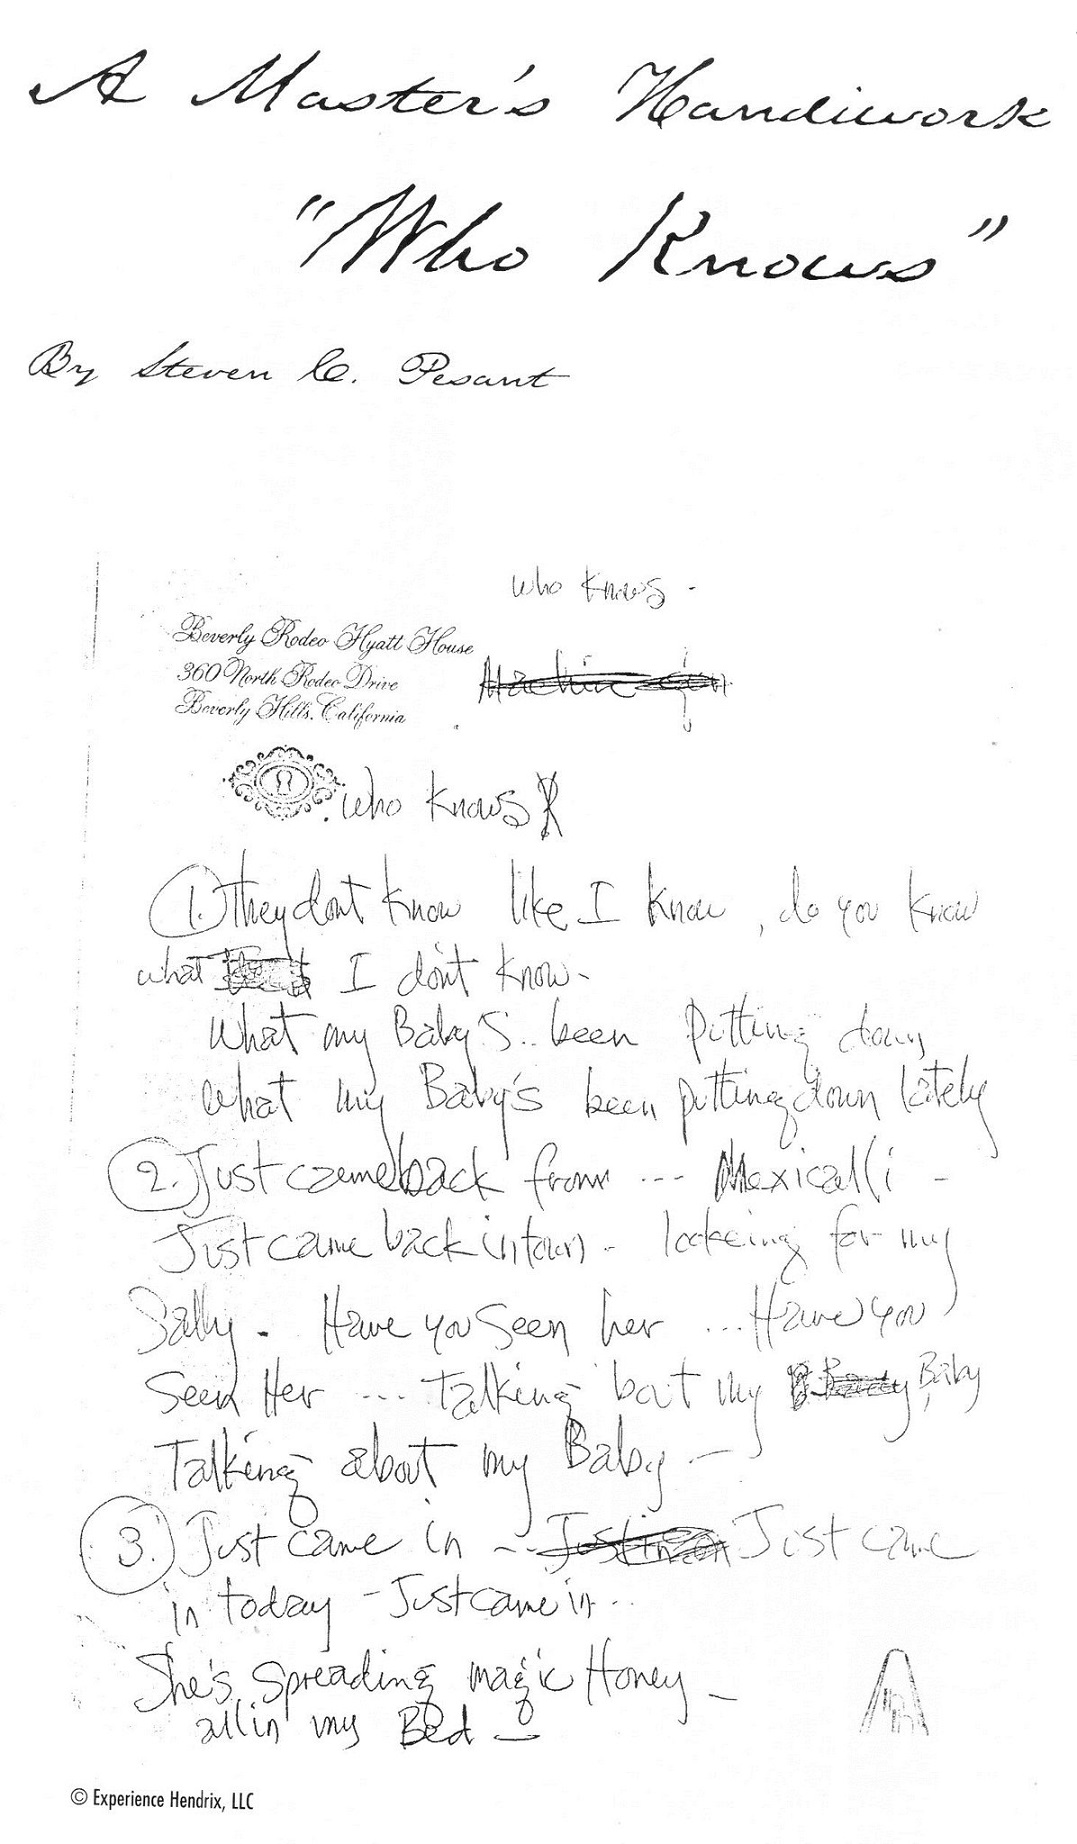 A Master's Handiwork
"Who Knows"
By Steven C. Pesant
who knows -
Beverly Rodeo Hyatt House
360 North Rodeo Drive
Beverly Hills, California
Machine gun
who knows
1. They dont know like I know, do you know
what I don't know-
What my Baby's.. been Putting down
what my Baby's been putting down lately
2. Just came back from --- Mexicalli -
Just came back in town - lookeing for my
Sally. Have you seen her ... Have you
Seen Her --- Talking 'bout my Baby
Talking about my Baby -
3. Just came in -- Just came
in today - Just came in ..
She's Spreading magic Honey -
all in my Bed -
© Experience Hendrix, LLC